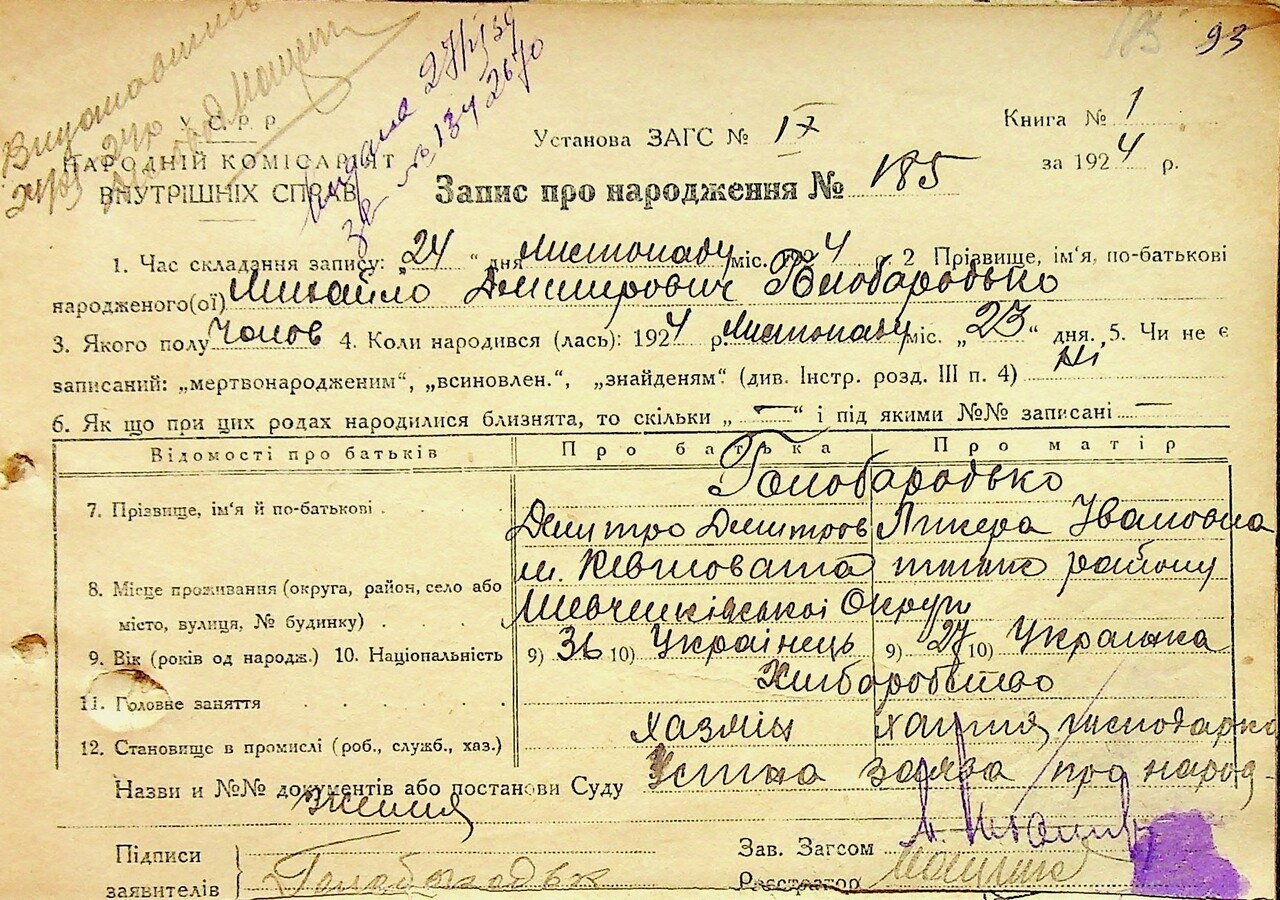 183 93
У С Р Р
НАРОДНІЙ КОМІСАРІЯТ
ВНУТРІШНІХ СПРАВ
Видана 27/IV 39
№ 134267
Установа ЗАГС № IX
Книга № 1
за 1924 р.
Запис про народження № 185
1. Час складання запису: „24“ дня Листопаду міс. 1924 р. 2 Прізвище, ім'я, по-батькові
народженого(ої) Михайло Дмитрович Голобародько
3. Якого полу Чолов 4. Коли народився (лась): 1924 р. Листопаду міс. „23“ дня. 5. Чи не є
записаний: „мертвонародженим“, „всиновлен.“, „знайденям“ (див. Інстр. розд. III п. 4) Ні
6. Як що при цих родах народилися близнята, то скільки „—“ і під якими №№ записані —
Відомості про батьків Про батька Про матір
7. Прізвище, ім'я й по-батькові Голобародько
Дмитро Дмитров Ликера Івановна
8. Місце проживання (округа, район, село або м. Ківшовата тиж району
місто, вулиця, № будинку) Шевченківської Округи
9. Вік (років од народж.) 10. Національність 9) 36 10) Українець 9) 27 10) Українка
11. Головне заняття Хліборобство
12. Становище в промислі (роб., служб., хаз.) хазяїн хатня господарка
Назви и №№ документів або постанови Суду Устна заява про народ-
ження
Підписи
заявителів Голобородьк
Зав. Загсом
Реєстратор